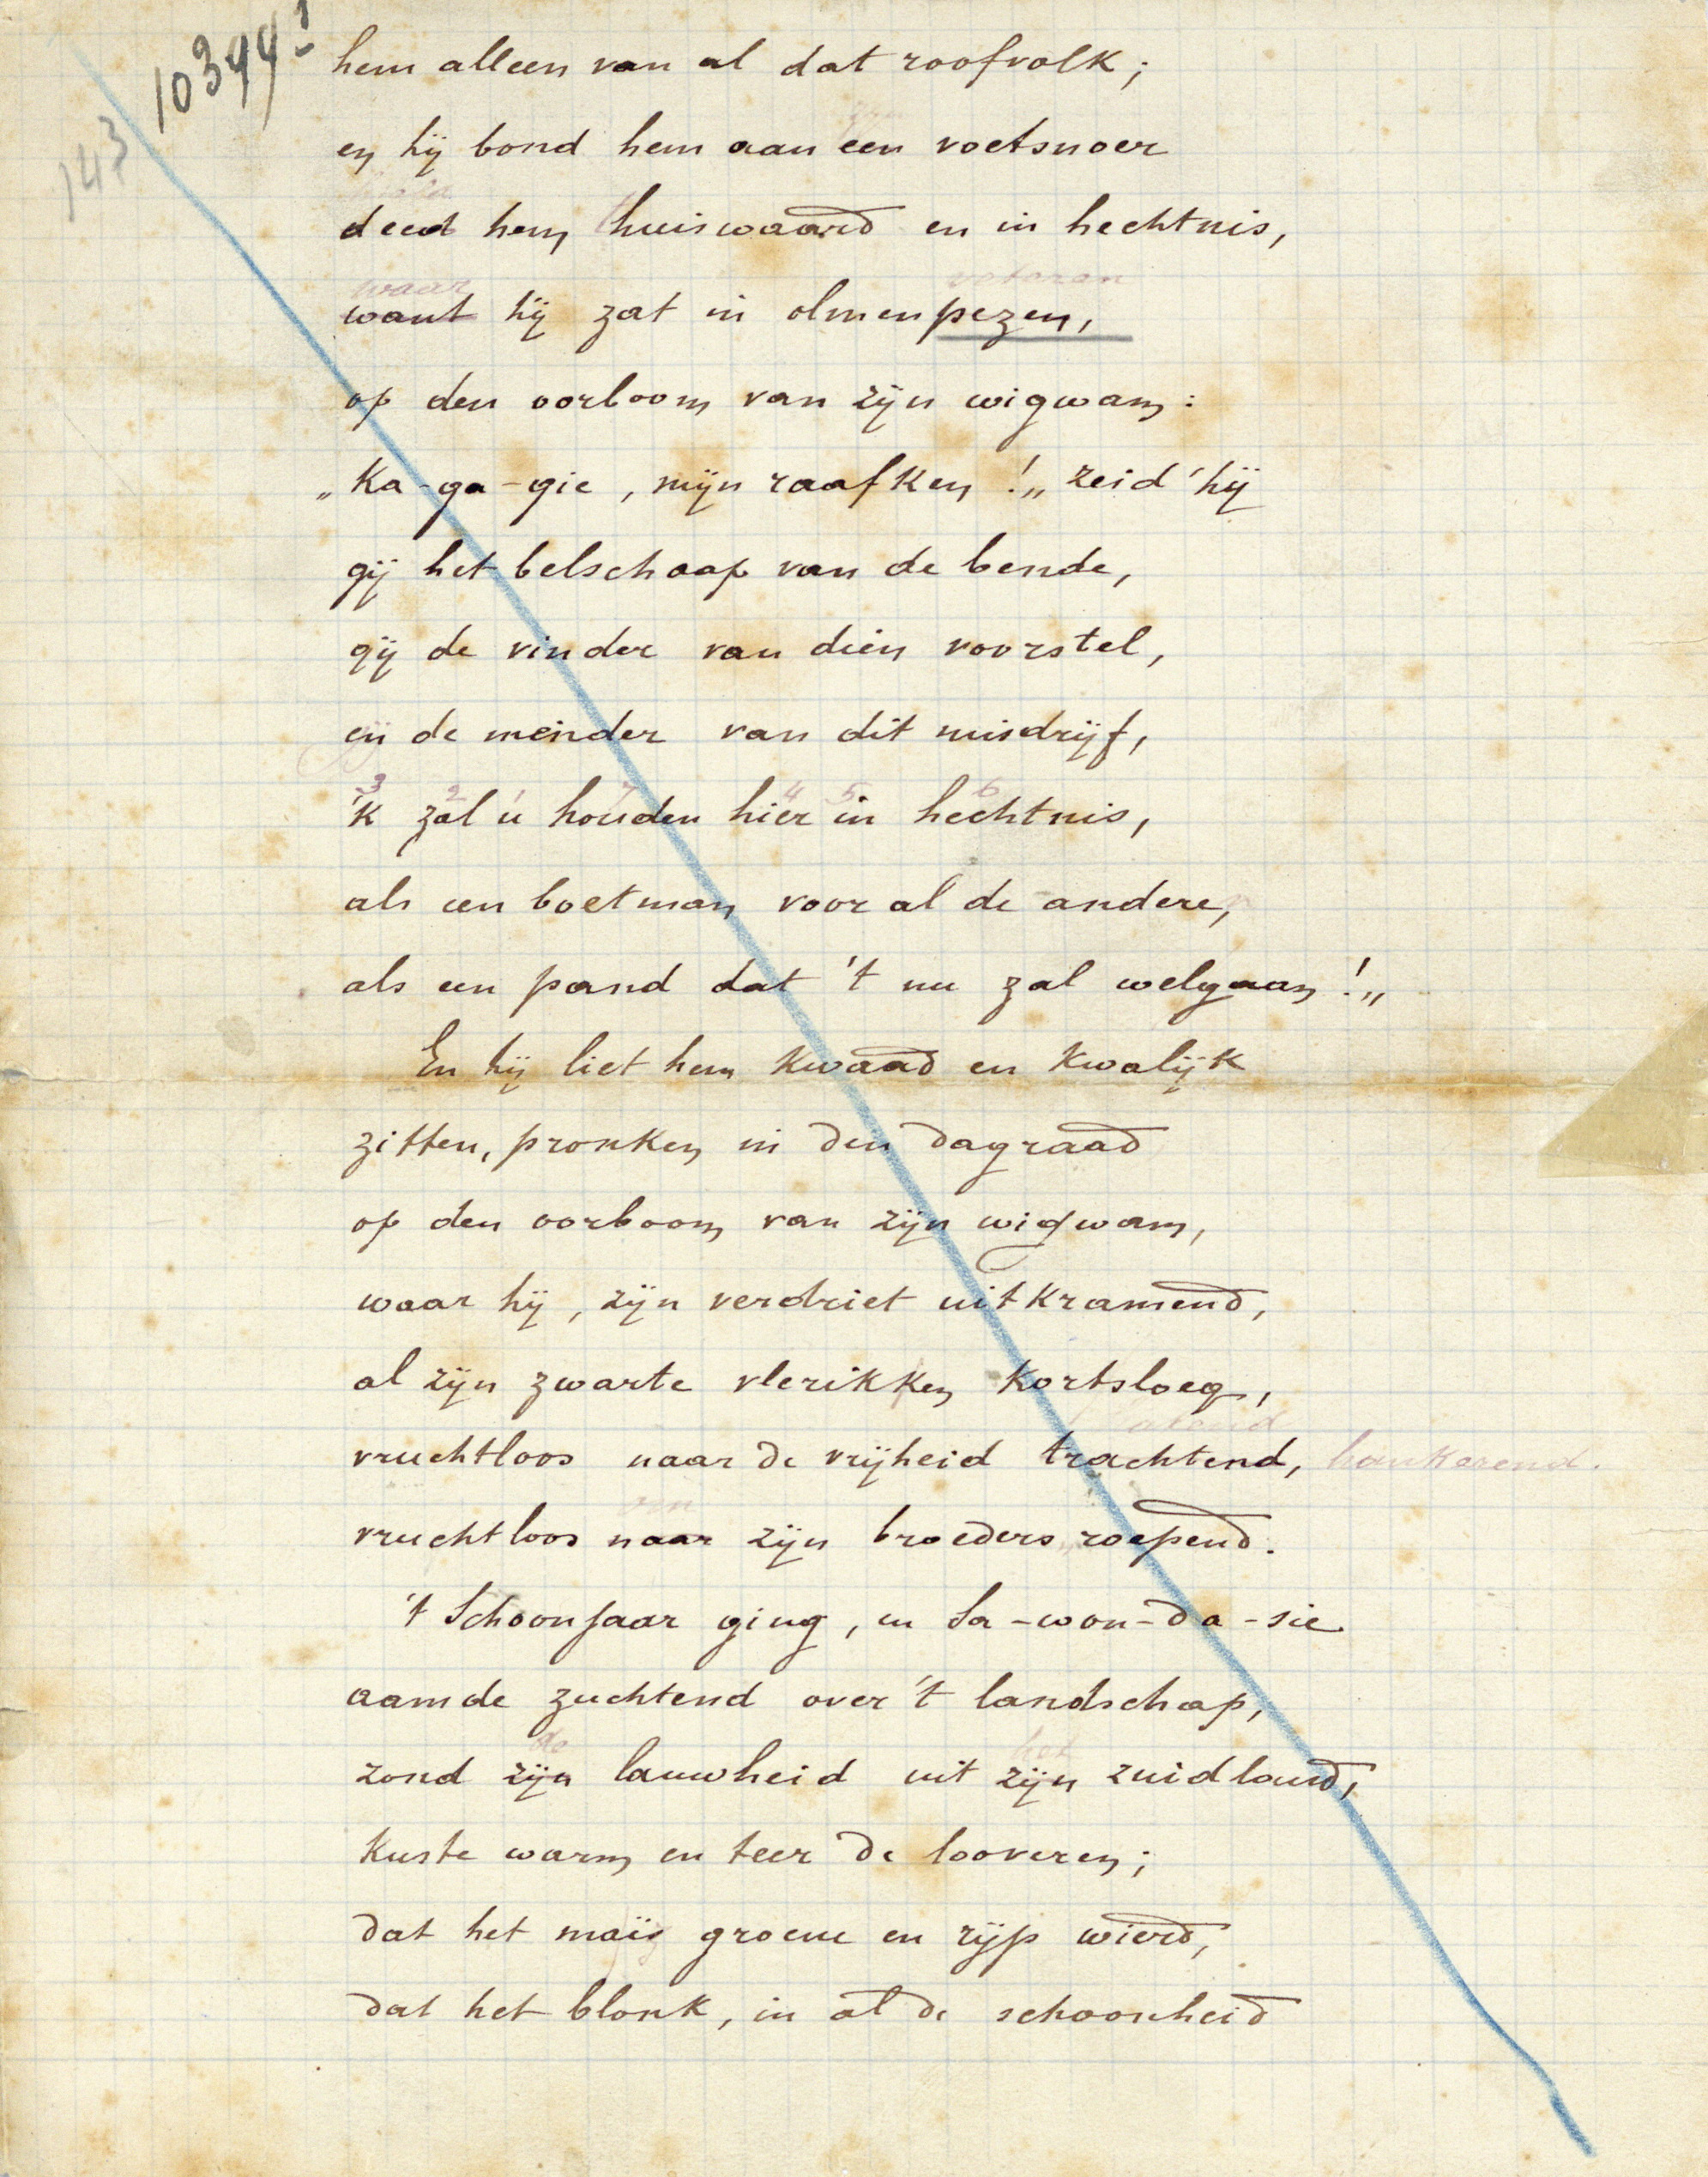 10344
143
hem alleen van al dat roofvolk;
en hij bond hem aan een voetsnoer
deed hem thuiswaard en in hechtnis,
waar veteren
want hij zat in olmenpezen,
op den oorboom van zijn wigwam:
„Ka-ga-gie, mijn raafken!„ zeid' hij
gij het belschaap van de bende,
gij de vinder van dien voorstel,
gij de meinder van dit misdrijf,
3 2 1 7 4 5 6
'k zal u houden hier in hechtnis,
als een boetman voor al de andere,
als een pand dat 't nu zal welgaan!„
En hij liet hem kwaad en kwalijk
zitten, pronken in den dagraad
op den oorboom van zijn wigwam,
waar hij, zijn verdriet uitkramend,
al zijn zwarte vlerikken kortsloeg,
vruchtloos naar de vrijheid trachtend, hankerend.
om
vruchtloos naar zijn broeders roepend.
't Schoonjaar ging, en Sa-won-da-sie
aamde zuchtend over 't landschap,
de het
zond zijn lauwheid uit zijn zuidland,
kuste warm en teer de looveren;
dat het maïs groene en rijp wierd,
dat het blonk, in al de schoonheid